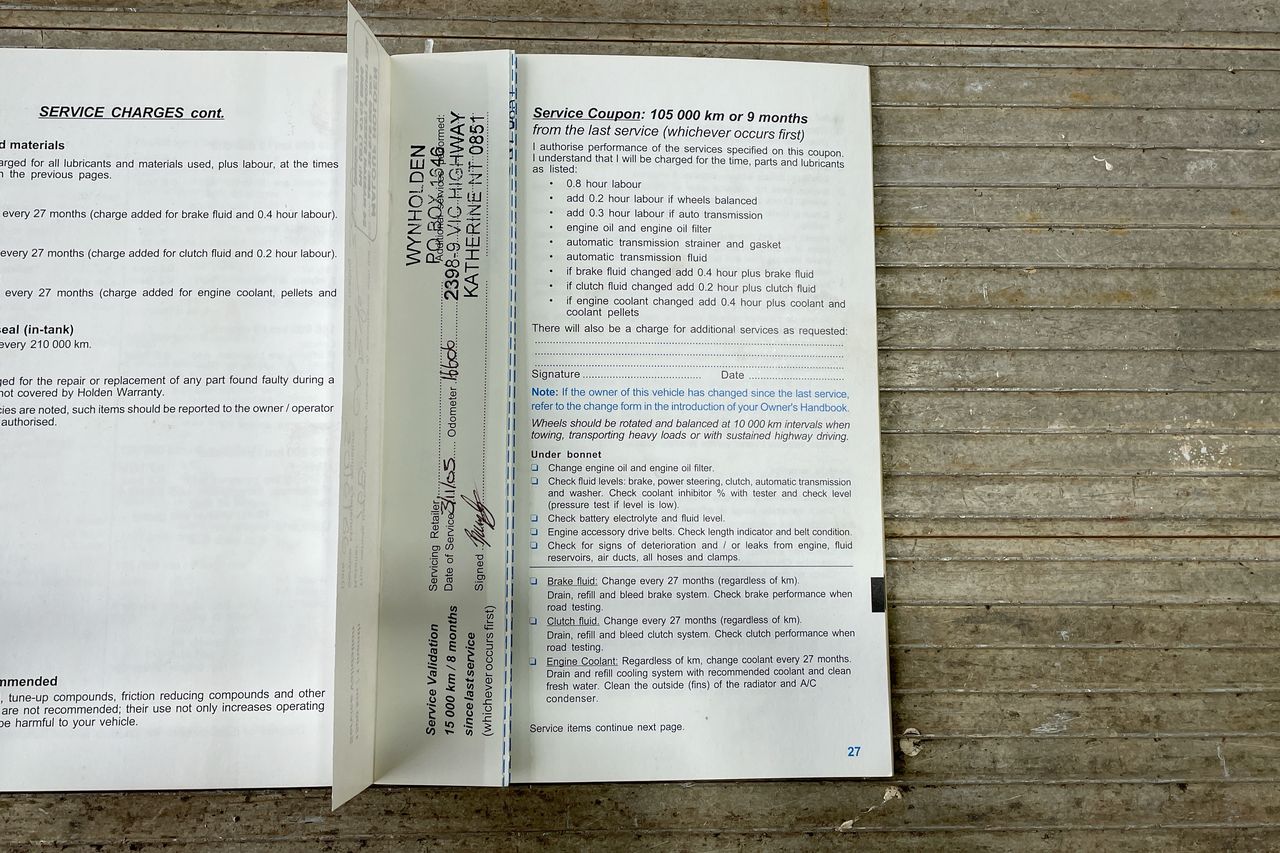 SERVICE CHARGES cont.
d materials
arged for all lubricants and materials used, plus labour, at the times
the previous pages.
every 27 months (charge added for brake fluid and 0.4 hour labour).
every 27 months (charge added for clutch fluid and 0.2 hour labour).
every 27 months (charge added for engine coolant, pellets and
seal (in-tank)
every 210 000 km.
ged for the repair or replacement of any part found faulty during a
not covered by Holden Warranty.
cies are noted, such items should be reported to the owner / operator
authorised.
mmended
, tune-up compounds, friction reducing compounds and other
are not recommended; their use not only increases operating
be harmful to your vehicle.
WYNHOLDEN
PO BOX 1646
2398-9 VIC HIGHWAY
KATHERINE NT 0851
Servicing Retailer
Date of Service 3/11/05 Odometer
Signed
Service Validation
15 000 km / 8 months
since last service
(whichever occurs first)
Service Coupon: 105 000 km or 9 months
from the last service (whichever occurs first)
I authorise performance of the services specified on this coupon.
I understand that I will be charged for the time, parts and lubricants
as listed:
• 0.8 hour labour
• add 0.2 hour labour if wheels balanced
• add 0.3 hour labour if auto transmission
• engine oil and engine oil filter
• automatic transmission strainer and gasket
• automatic transmission fluid
• if brake fluid changed add 0.4 hour plus brake fluid
• if clutch fluid changed add 0.2 hour plus clutch fluid
• if engine coolant changed add 0.4 hour plus coolant and
coolant pellets
There will also be a charge for additional services as requested:
Signature Date
Note: If the owner of this vehicle has changed since the last service,
refer to the change form in the introduction of your Owner's Handbook.
Wheels should be rotated and balanced at 10 000 km intervals when
towing, transporting heavy loads or with sustained highway driving.
Under bonnet
❑ Change engine oil and engine oil filter.
❑ Check fluid levels: brake, power steering, clutch, automatic transmission
and washer. Check coolant inhibitor % with tester and check level
(pressure test if level is low).
❑ Check battery electrolyte and fluid level.
❑ Engine accessory drive belts. Check length indicator and belt condition.
❑ Check for signs of deterioration and / or leaks from engine, fluid
reservoirs, air ducts, all hoses and clamps.
❑ Brake fluid: Change every 27 months (regardless of km).
Drain, refill and bleed brake system. Check brake performance when
road testing.
❑ Clutch fluid. Change every 27 months (regardless of km).
Drain, refill and bleed clutch system. Check clutch performance when
road testing.
❑ Engine Coolant: Regardless of km, change coolant every 27 months.
Drain and refill cooling system with recommended coolant and clean
fresh water. Clean the outside (fins) of the radiator and A/C
condenser.
Service items continue next page.
27